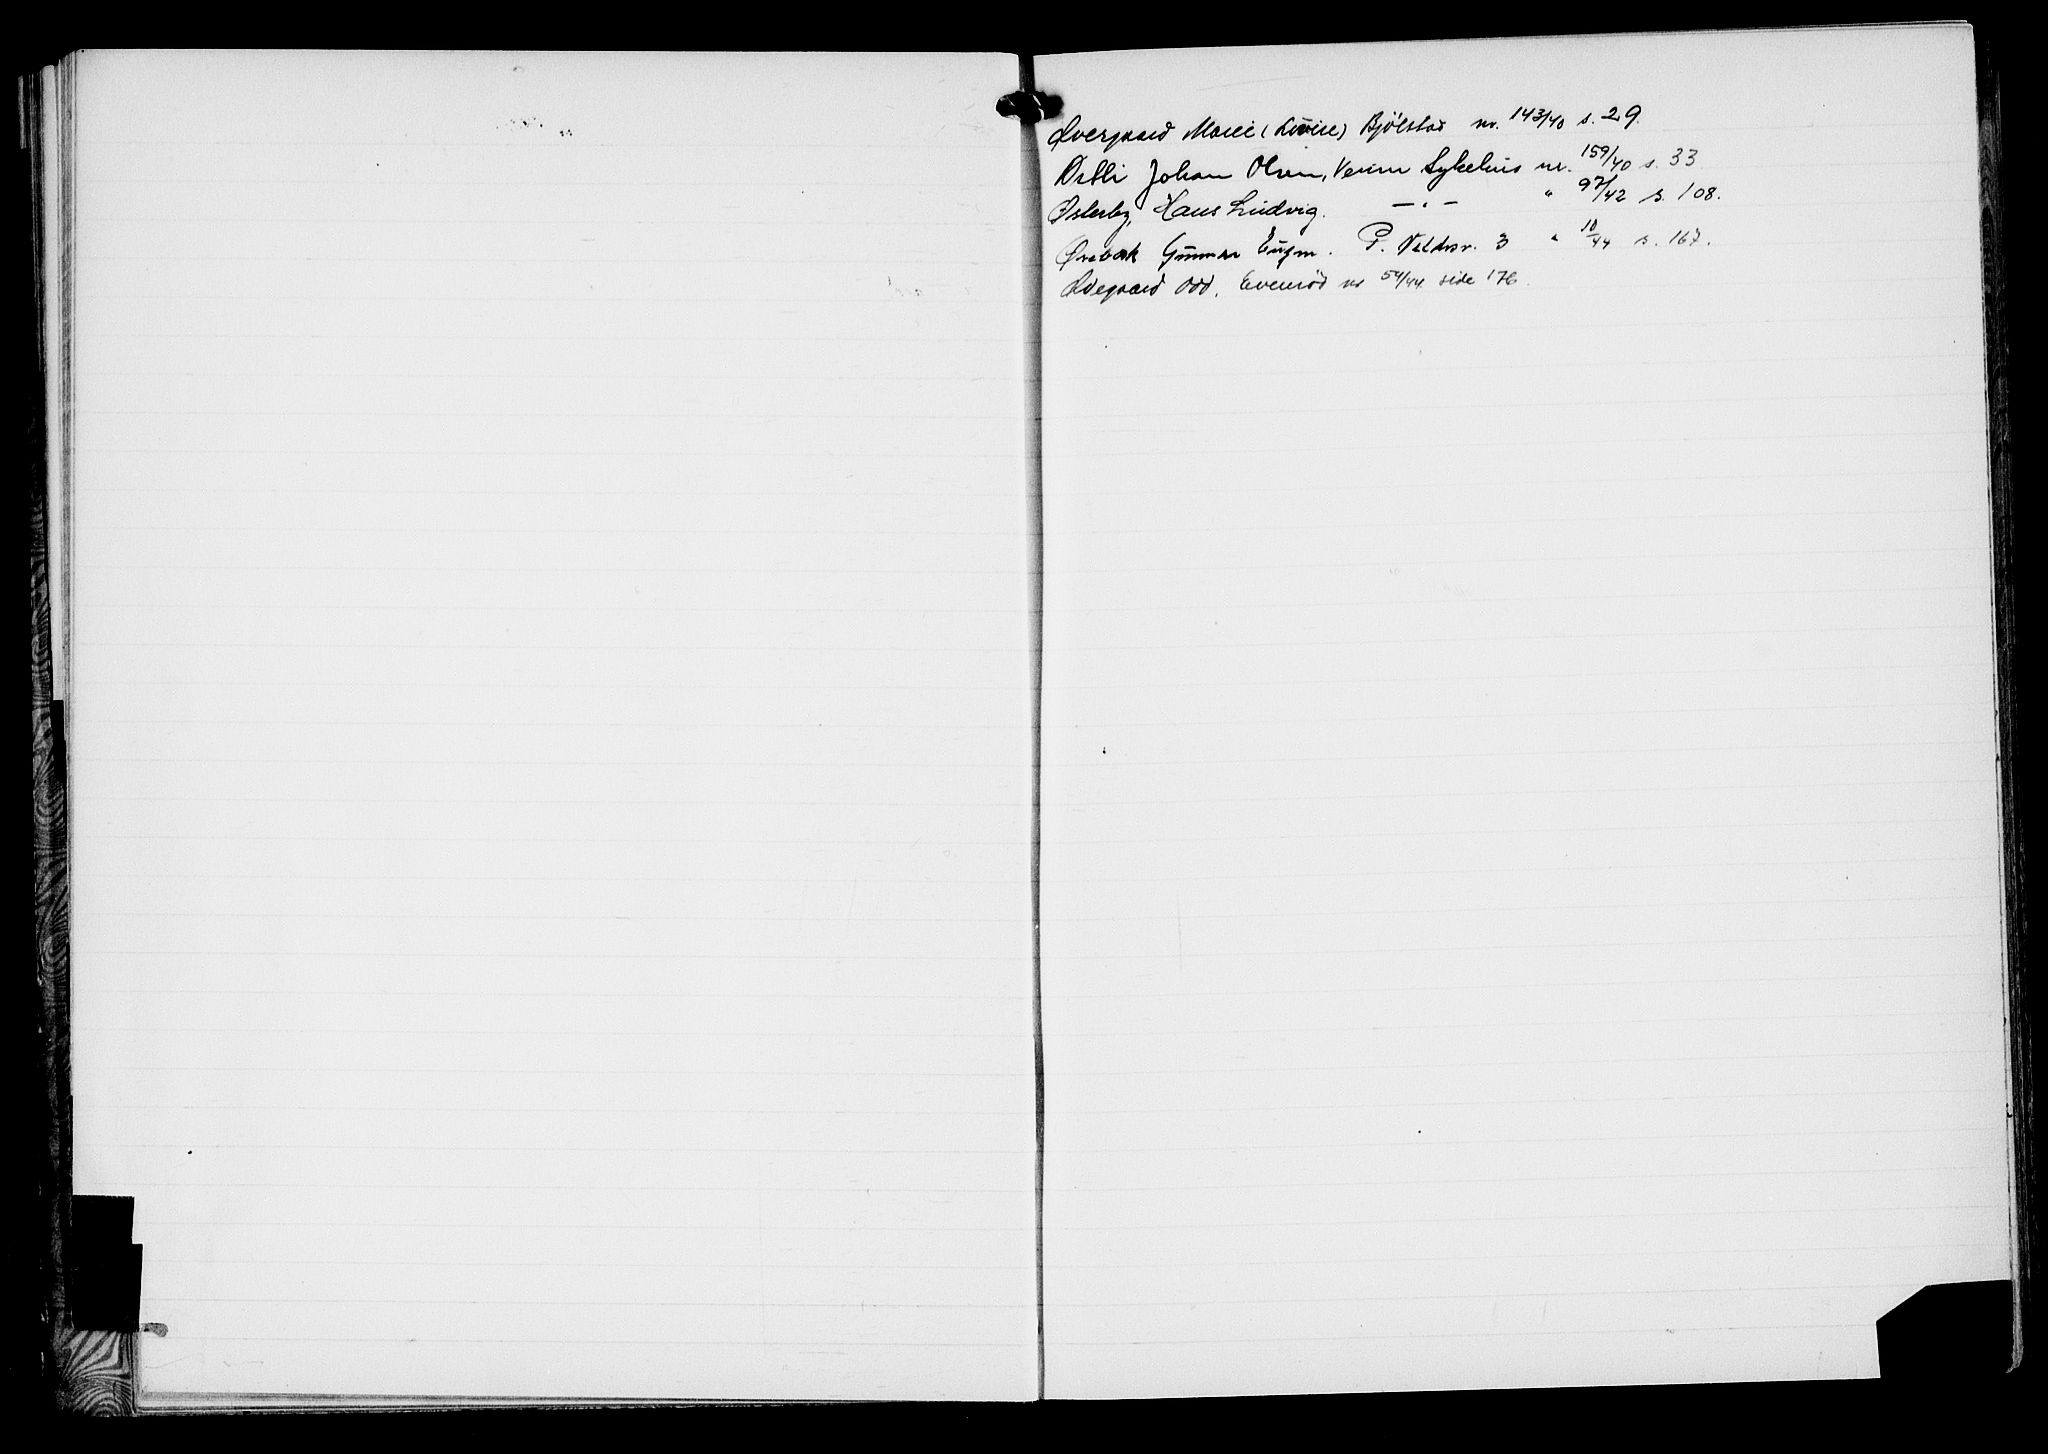 Øvergaard Marie (Lovise) Bjölstad nr. 143/40 s. 29.
Østli Johan Olsen, Verum Sykehus nr. 159/40 s. 33
Østerby, Hans Ludvig. — " — " 97/42 s. 108.
Ørebæk Gunnar Eugen. P. Veldtsv. 3 " 10/44 s. 167.
Ødegaard Odd. Evenröd nr 54/44 side 176.